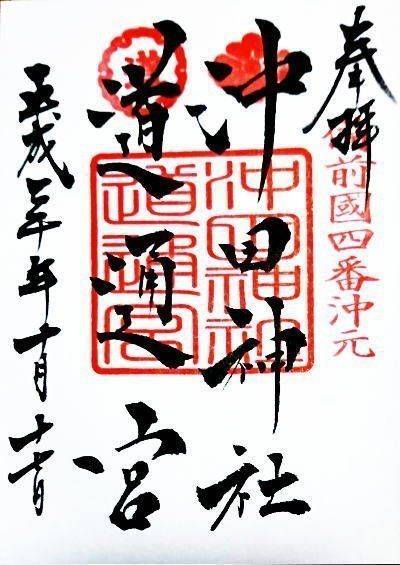 奉拝
備前國四番沖元
沖田神社
道通宮
沖田神社
道通宮
平成三十年十月十七日